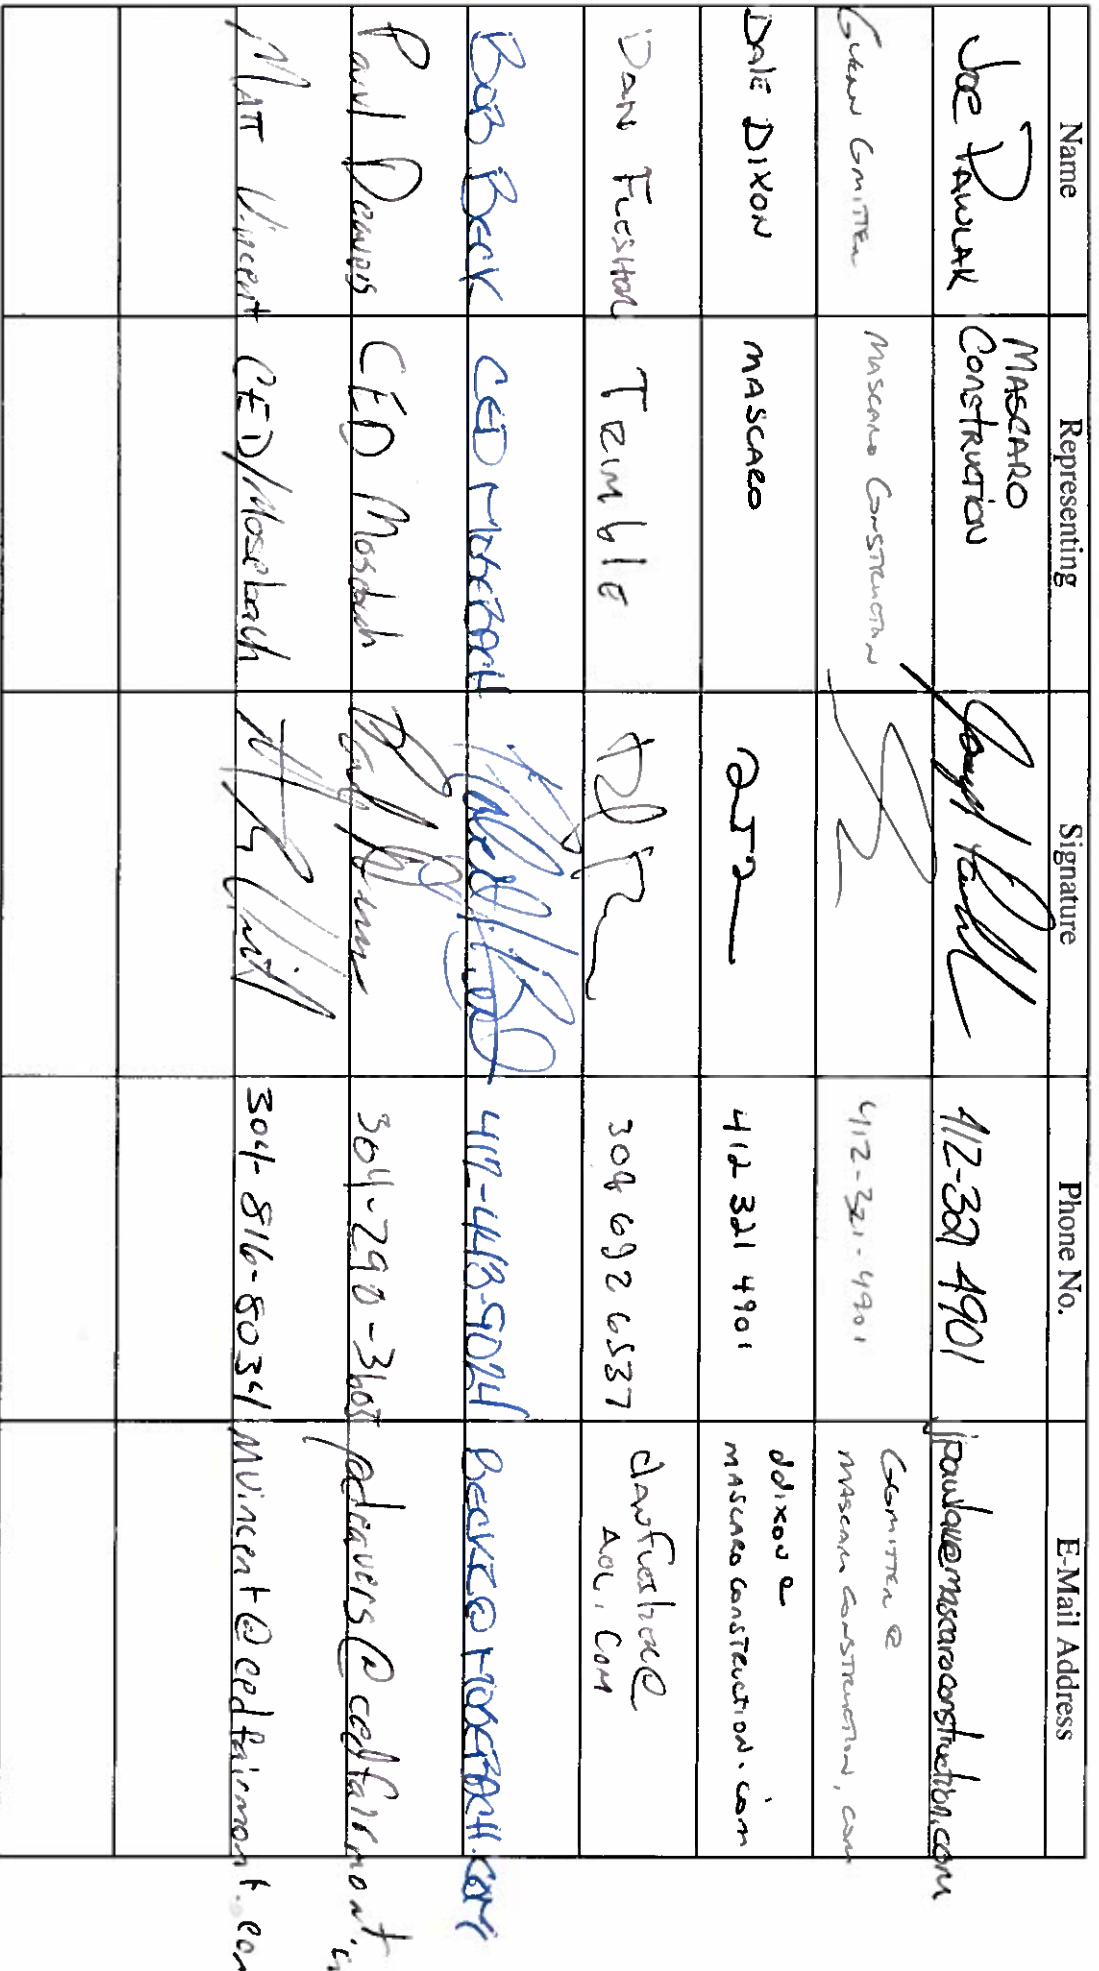 Name Representing Signature Phone No. E-Mail Address
JOE PAWLAK MASCARO CONSTRUCTION 412-321-4901 jpawlak@mascaroconstruction.com
GMITTER MASCARO CONSTRUCTION 412-321-4901 GGMITTER@ MASCARO CONSTRUCTION.COM
DALE DIXON MASCARO 412 321 4901 ddixon@ MASCAROCONSTRUCTION.COM
DAN FLESHER Trimble 304 692 6537 danflesher@ AOL.COM
BOB BECK CED MOSEBACH 412-443-9024 BECKR@MOSEBACH.COM
Paul Deavers CED Mosebach 304-290-3605 pdeavers@cedfairmont.
MATT Vincent CED/Mosebach 304-816-8034 Mvincent@cedfairmont.com